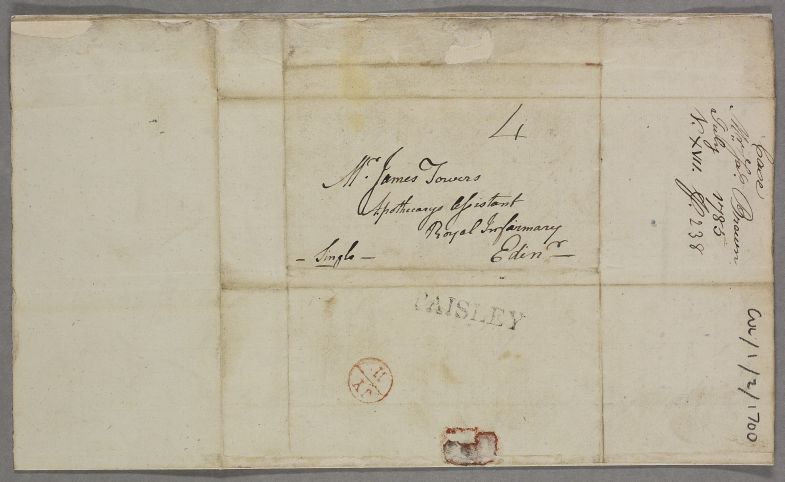 4
Mr. James Towers
Apothecarys Assistant
Royal Infirmary
Edinr.
- Single -
PAISLEY
11
IY
Case
Mr. Jas. Brown
July 1785
V. XVII. P. 238
CUL/1/2/1700